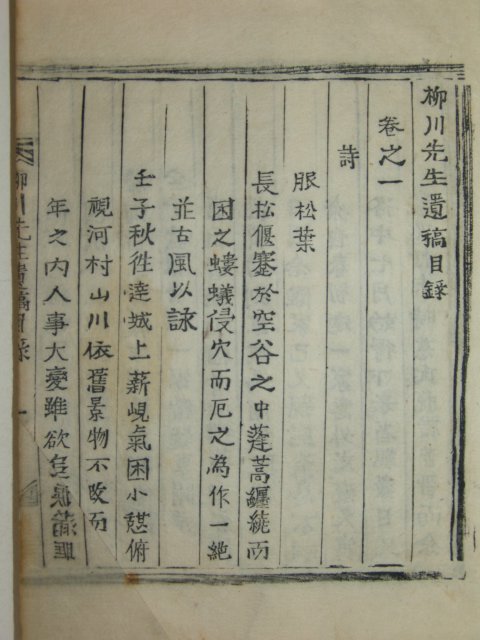 柳川先生遺稿目錄
卷之一
詩
服松葉
長松偃蹇於空谷之中蓬蒿纏繞而
困之螻蟻侵穴而厄之為作一絶
並古風以詠
壬子秋徃達城上薪峴氣困小憇俯
視河村山川依舊景物不改而
年之內人事大變雖欲
柳川先生遺稿目錄 一